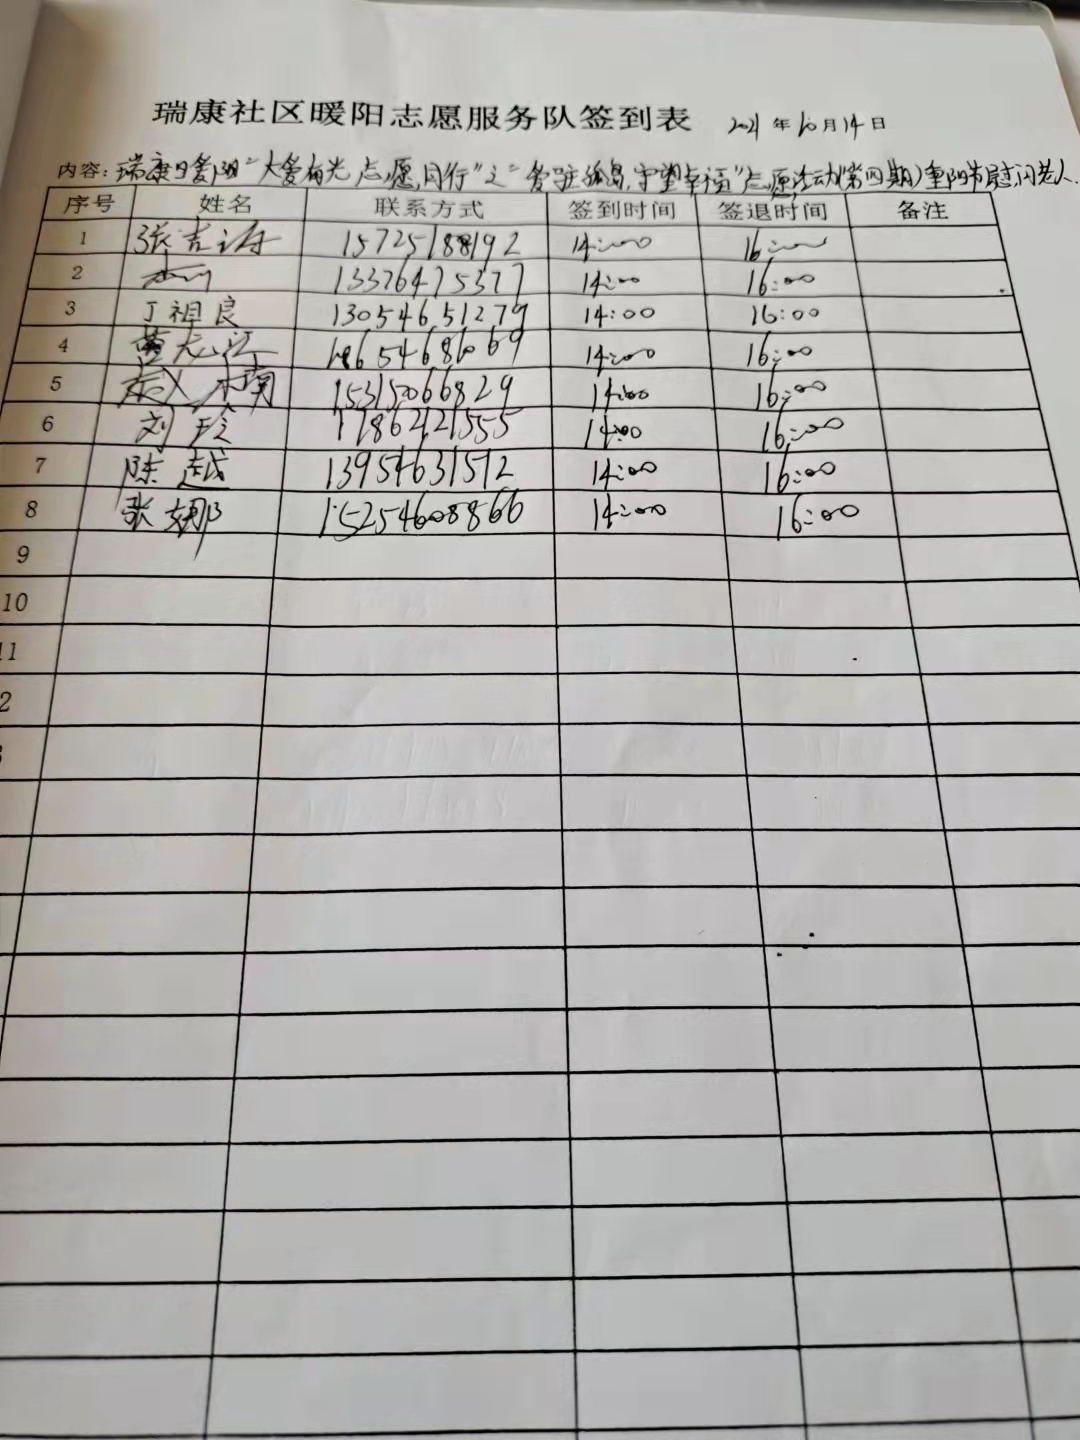 瑞康社区暖阳志愿服务队签到表 2021年10月14日
内容: 瑞康日爱阳"大爱有光 志愿同行"之"爱驻孤岛,守望幸福"志愿活动(第四期)重阳节慰问老人.
序号 姓名 联系方式 签到时间 签退时间 备注
1 张吉涛 15725188192 14:00 16:00
2 13376475377 14:00 16:00
3 丁祖良 13054651279 14:00 16:00
4 黄元江 18654686069 14:00 16:00
5 15315066829 14:00 16:00
6 刘玲 17862121555 14:00 16:00
7 陈越 13954631512 14:00 16:00
8 张娜 15254608866 14:00 16:00
9
10
11
2
3